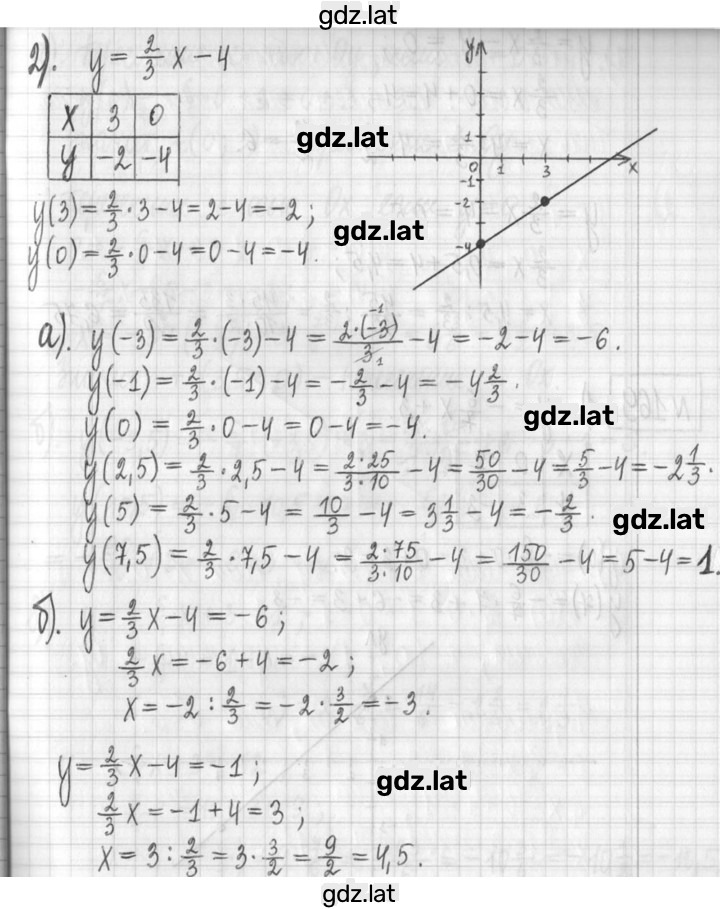 gdz.lat
2). y = 2/3 x - 4
x 3 0
y -2 -4
y(3) = 2/3 · 3 - 4 = 2 - 4 = -2;
y(0) = 2/3 · 0 - 4 = 0 - 4 = -4.
gdz.lat
gdz.lat
y
1
0 1 3 x
-1
-2
-4
а). y(-3) = 2/3 · (-3) - 4 = 2·(-3)/3 - 4 = -2 - 4 = -6.
y(-1) = 2/3 · (-1) - 4 = -2/3 - 4 = -4 2/3.
y(0) = 2/3 · 0 - 4 = 0 - 4 = -4.
gdz.lat
y(2,5) = 2/3 · 2,5 - 4 = 2·25/3·10 - 4 = 50/30 - 4 = 5/3 - 4 = -2 1/3.
y(5) = 2/3 · 5 - 4 = 10/3 - 4 = 3 1/3 - 4 = -2/3.
gdz.lat
y(7,5) = 2/3 · 7,5 - 4 = 2·75/3·10 - 4 = 150/30 - 4 = 5 - 4 = 1.
б). y = 2/3 x - 4 = -6;
2/3 x = -6 + 4 = -2;
x = -2 : 2/3 = -2 · 3/2 = -3.
y = 2/3 x - 4 = -1;
gdz.lat
2/3 x = -1 + 4 = 3;
x = 3 : 2/3 = 3 · 3/2 = 9/2 = 4,5.
gdz.lat